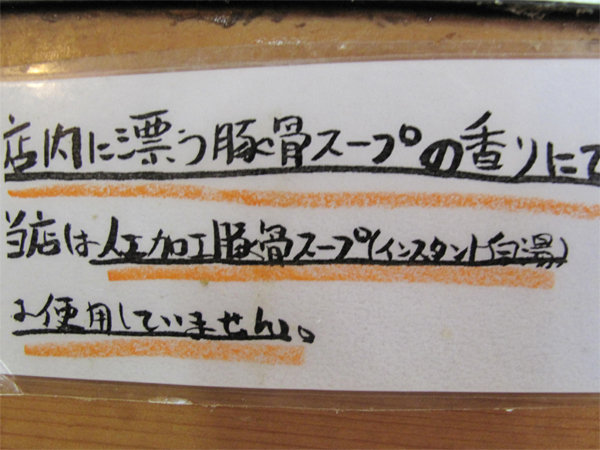 店内に漂う豚骨スープの香りにて
当店は人工加工豚骨スープ(インスタント白湯)
は使用していません。